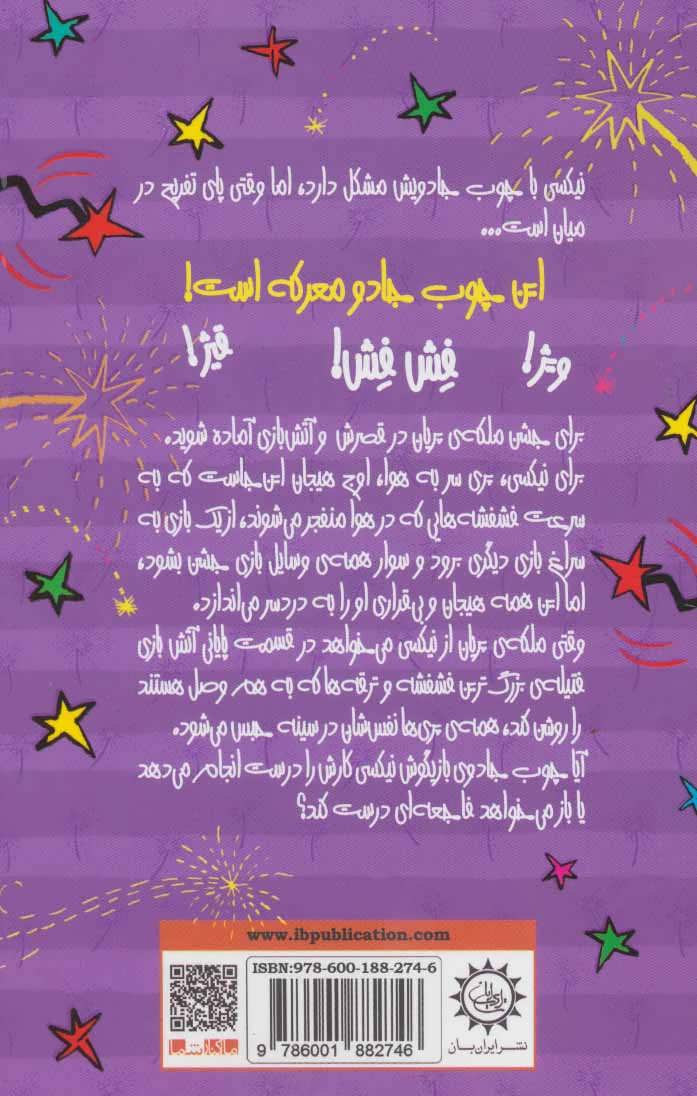 نیکسی با چوب جادویش مشکل دارد، اما وقتی پای تفریح در
میان است...
این چوب جادو معرکه است!
ویژ! فِش فِش! قیژ!
برای جشن ملکه‌ی پریان در قصرش و آتش‌بازی آماده شوید.
برای نیکسی، پری سر به هوا، اوج هیجان این‌جاست که به
سرعت فشفشه‌هایی که در هوا منفجر می‌شوند، از یک بازی به
سراغ بازی دیگری برود و سوار همه‌ی وسایل بازی جشن بشود،
اما این همه هیجان و بی‌قراری او را به دردسر می‌اندازد.
وقتی ملکه‌ی پریان از نیکسی می‌خواهد در قسمت پایانی آتش بازی
فتیله‌ی بزرگ‌ترین فشفشه و ترقه‌ها که به هم وصل هستند
را روشن کند، همه‌ی پری‌ها نفس‌شان در سینه حبس می‌شود.
آیا چوب جادوی بازیگوش نیکسی کارش را درست انجام می‌دهد
یا باز می‌خواهد فاجعه‌ای درست کند؟
www.ibpublication.com
ISBN:978-600-188-274-6
9 786001 882746
نشر ایران‌بان